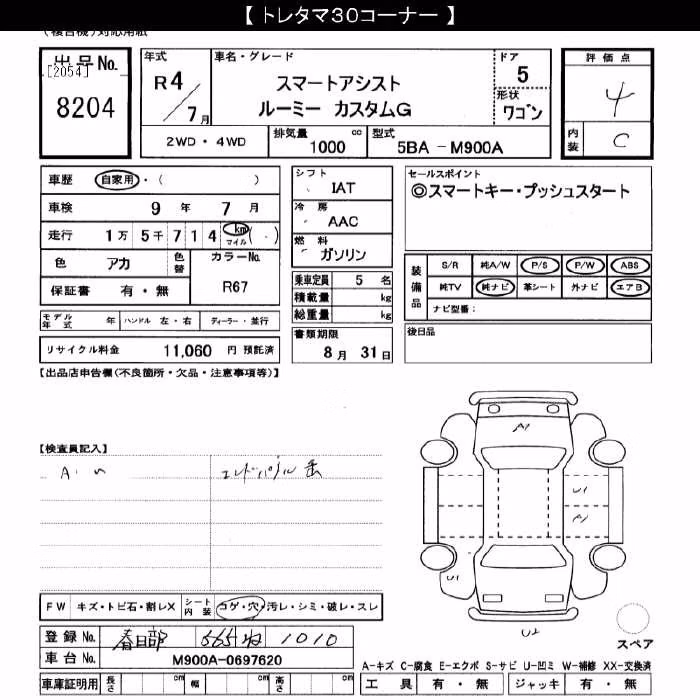 【 トレタマ30コーナー 】
(複合機)対応用紙
出品No. [2054] 8204
年式 R4 / 7月
車名・グレード スマートアシスト ルーミー カスタムG
ドア 5
形状 ワゴン
2WD・4WD
排気量 cc 1000
型式 5BA - M900A
評価点 4
内装 C
車歴 自家用・( )
車検 9年 7月
走行 1万 5千 7 1 4 km マイル ( . )
色 アカ 色替 カラーNo. R67
保証書 有・無
モデル年式 年 ハンドル 左・右 ディーラー・並行
リサイクル料金 11,060 円 預託済
シフト IAT
冷房 AAC
燃料 ガソリン
乗車定員 5 名
積載量 kg
総重量 kg
書類期限
8月 31日
セールスポイント
◎スマートキー・プッシュスタート
装備品 S/R 純A/W P/S P/W ABS
純TV 純ナビ 革シート 外ナビ エアB
ナビ型番:
後日品
【出品店申告欄(不良箇所・欠品・注意事項等)】
【検査員記入】
A1
A1
U1
A1
U1
U2
スペア
FW キズ・トビ石・割レX シート内装 コゲ・穴・汚レ・シミ・破レ・スレ
登録 No. 春日部 565 ね 1010
車台 No. M900A-0697620
車庫証明用 長さ cm 幅 cm 高さ cm
A-キズ C-腐食 E-エクボ S-サビ U-凹ミ W-補修 XX-交換済
工具 有・無 ジャッキ 有・無